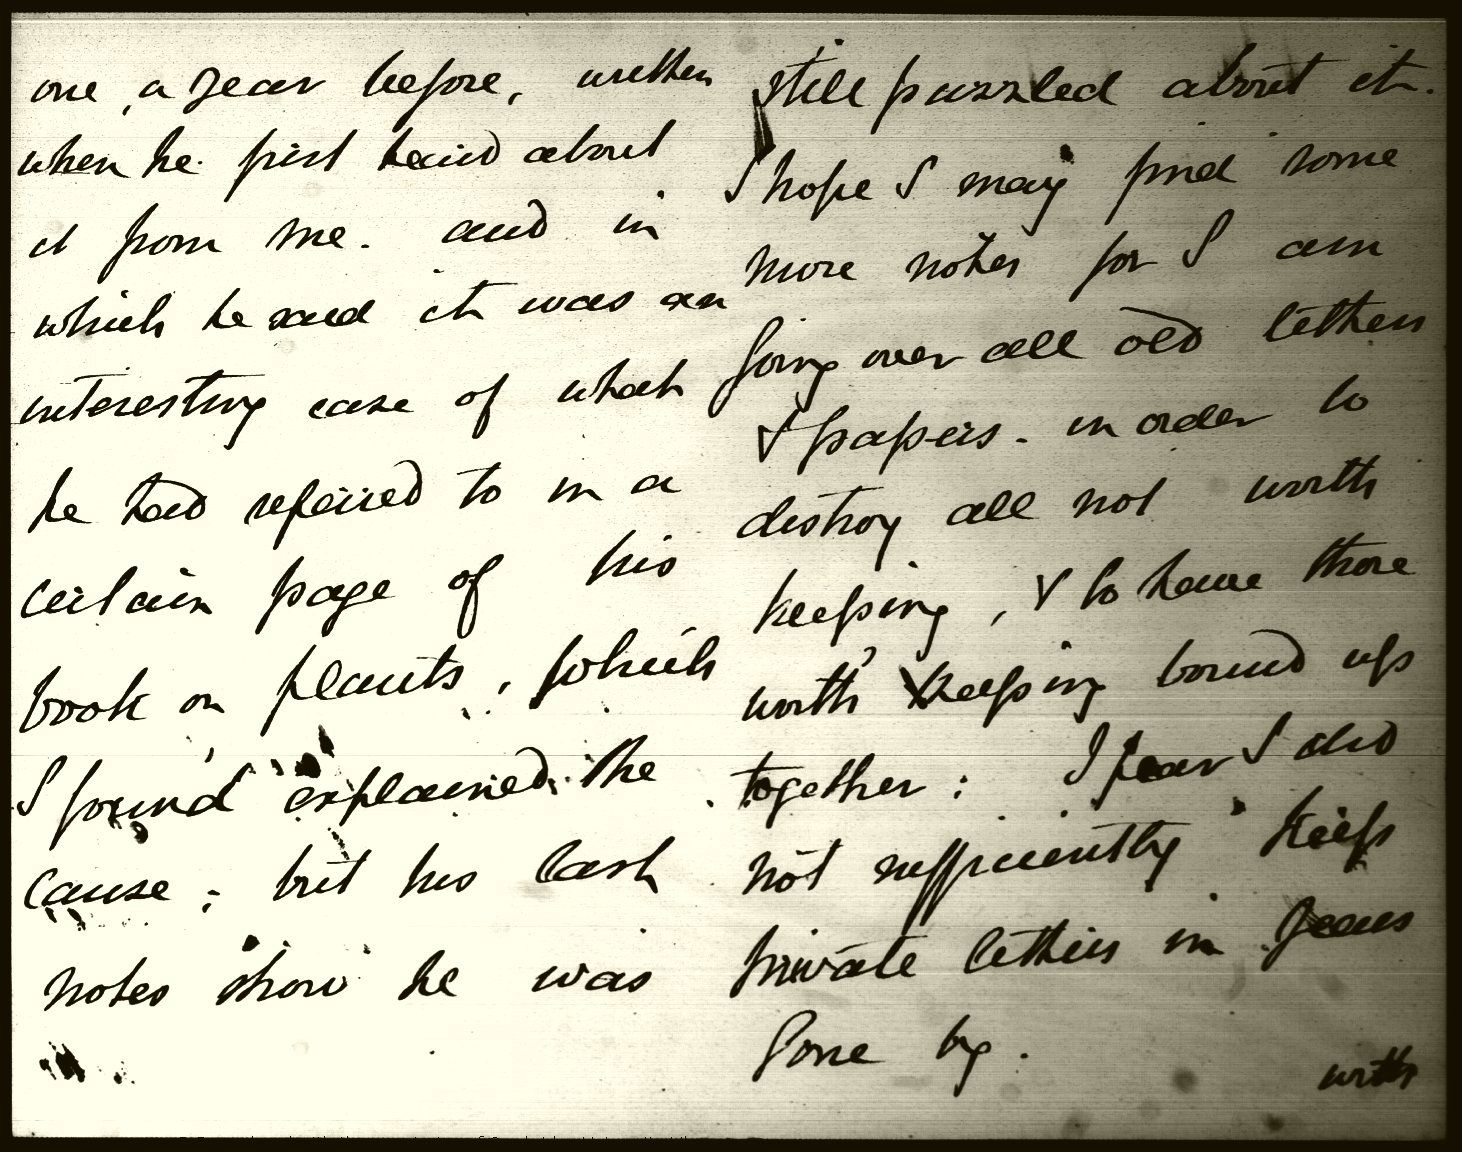 one, a year before, written
when he first heard about
it from me. and in
which he said it was an
interesting case of what
he had referred to in a
certain page of his
book on plants, which
I found explained the
cause; but his last
notes show he was
still puzzled about it.
I hope I may find some
more notes for I am
going over all old letters
& papers. in order to
destroy all not worth
keeping, & to have those
worth keeping bound up
together: I fear I did
not sufficiently keep
private letters in years
gone by.
with